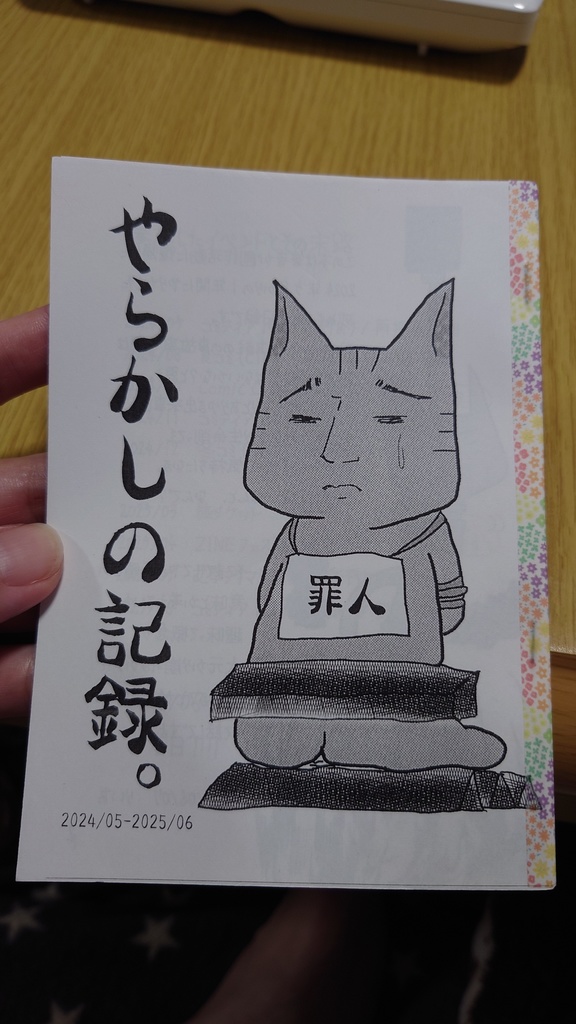 やらかしの記録。
罪人
2024/05-2025/06